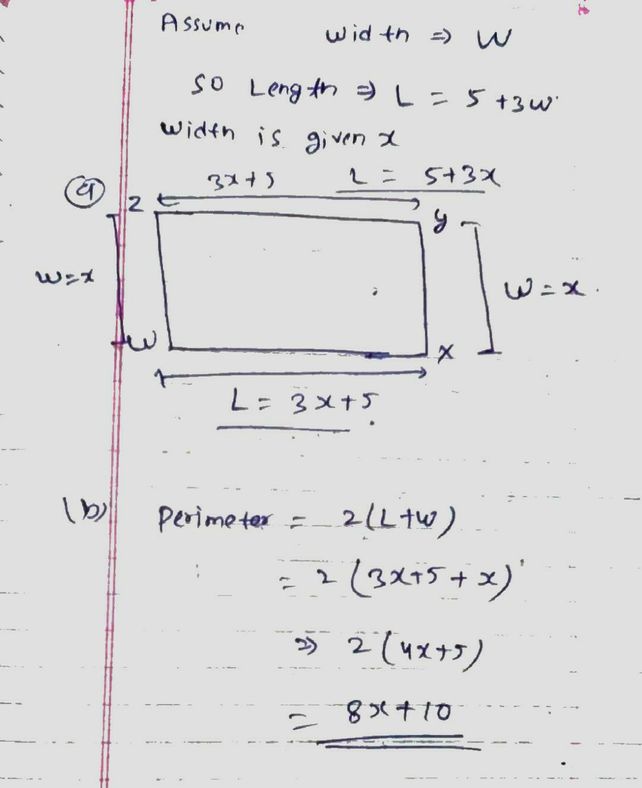 Assume width ⇒ W
so Length ⇒ L = 5 + 3w
width is given x
(a) 3x+5 L = 5+3x
Z y
w=x W = x.
W x
L = 3x+5.
(b) Perimeter = 2(L+w)
= 2(3x+5+x)
⇒ 2(4x+5)
= 8x+10